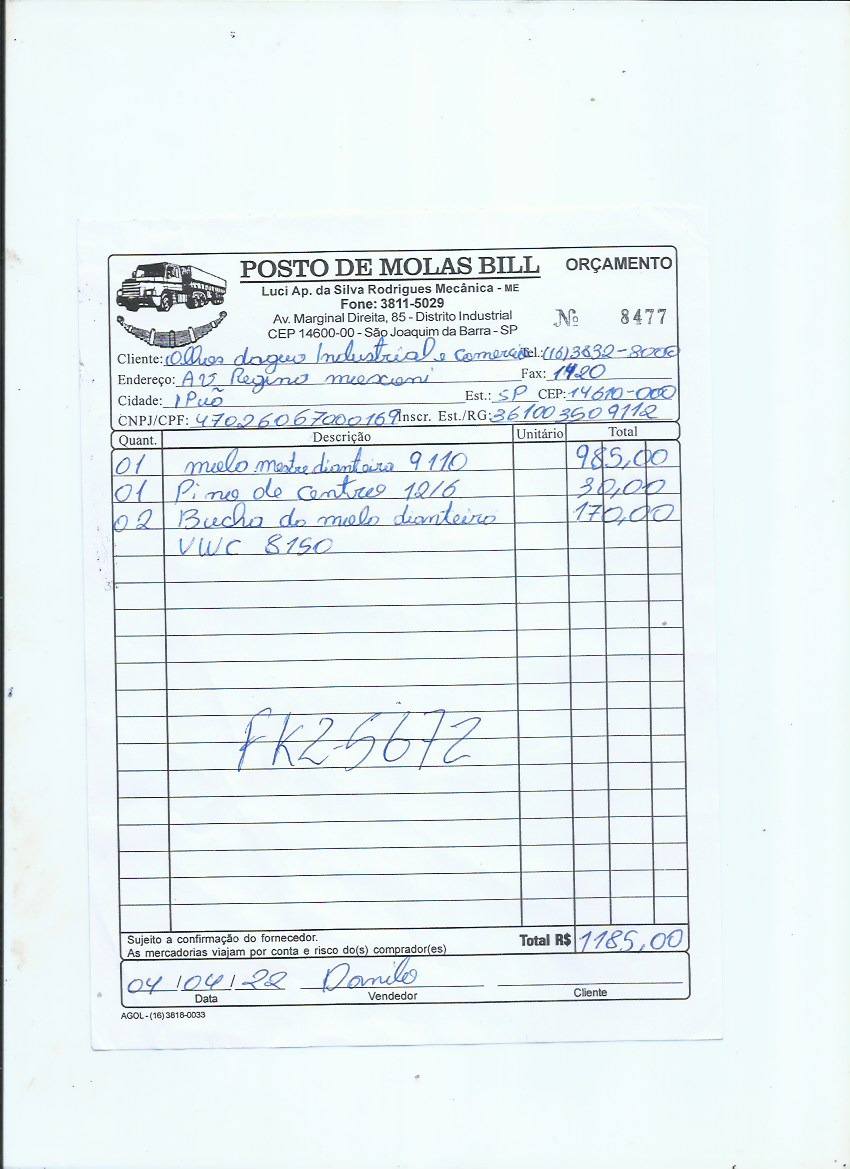 POSTO DE MOLAS BILL ORÇAMENTO
Luci Ap. da Silva Rodrigues Mecânica - ME
Fone: 3811-5029
Av. Marginal Direita, 85 - Distrito Industrial
Nº 8477
CEP 14600-00 - São Joaquim da Barra - SP
Cliente: Olhos dagua Industrial e comercio Tel.: (16)3832-8000
Endereço: AV Regino Fax: 1420
Cidade: IPuã Est.: SP CEP: 14610-000
CNPJ/CPF: 47026067000169 Inscr. Est./RG: 361003509112
Quant. Descrição Unitário Total
01 molo mestre dianteira 9110 985,00
01 Pino de centro 12/6 30,00
02 Bucha do molo dianteiro 170,00
VWC 8150
FKZ-5672
Sujeito a confirmação do fornecedor.
As mercadorias viajam por conta e risco do(s) comprador(es) Total R$ 1185,00
04/04/22 Danilo
Data Vendedor Cliente
AGOL - (16) 3818-0033